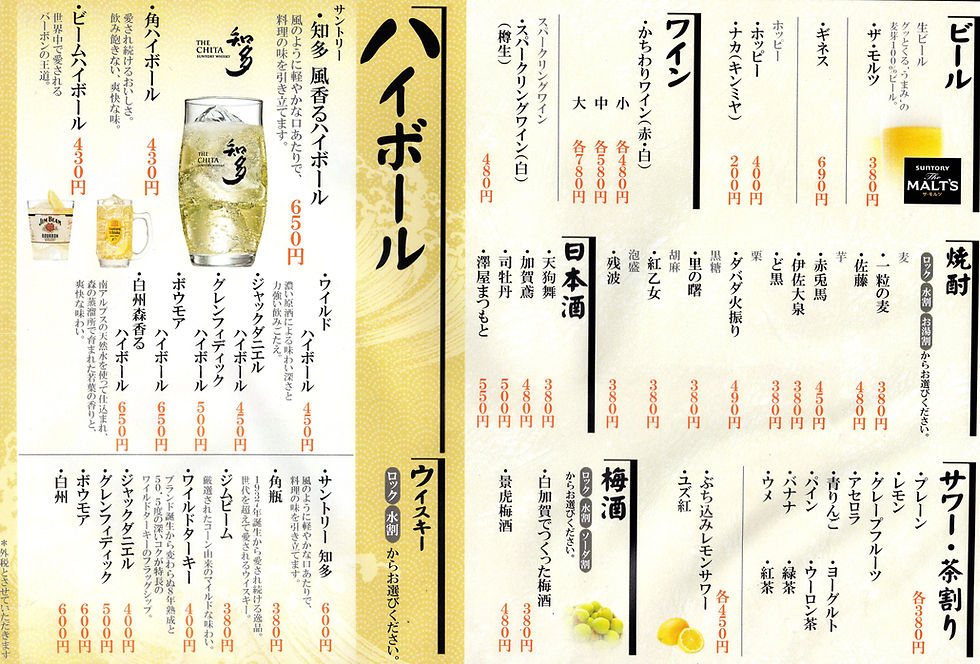 ビール
生ビール
グッとくる、うまみ。の
麦芽100%ビール。
・ザ・モルツ 380円
SUNTORY
The
MALT'S
ザ・モルツ
・ギネス 690円
ホッピー
・ホッピー 400円
・ナカ(キンミヤ) 200円
ワイン
・かちわりワイン(赤・白)
小 各480円
中 各580円
大 各780円
スパークリングワイン
・スパークリングワイン(白)
(樽生) 480円
焼酎
ロック 水割 お湯割 からお選びください。
麦
・一粒の麦 380円
・佐藤 480円
芋
・赤兎馬 450円
・伊佐大泉 380円
・ど黒 380円
栗
・ダバダ火振り 490円
黒糖
・里の曙 380円
胡麻
・紅乙女 380円
泡盛
・残波 380円
日本酒
・天狗舞 380円
・加賀鳶 480円
・司牡丹 500円
・澤屋まつもと 550円
サワー・茶割り
各380円
・プレーン
・レモン
・グレープフルーツ
・アセロラ
・青りんご
・パイン
・バナナ
・ウメ
・ヨーグルト
・ウーロン茶
・緑茶
・紅茶
・ぶち込みレモンサワー
・ユズ紅
各450円
梅酒
ロック 水割 ソーダ割
からお選びください。
・白加賀でつくった梅酒 380円
・景虎梅酒 480円
ハイボール
サントリー
・知多 風香るハイボール 650円
風のように軽やかな口あたりで、
料理の味を引き立てます。
知多
THE
CHITA
SUNTORY WHISKY
知多
THE
CHITA
SUNTORY WHISKY
・角ハイボール 430円
愛され続けるおいしさ。
飲み飽きない、爽快な味。
・ビームハイボール 430円
世界中で愛される
バーボンの王道。
JIM BEAM
BOURBON
・ワイルド
ハイボール 450円
濃い原酒による味わい深さと
力強い飲みごたえ。
・ジャックダニエル
ハイボール 450円
・グレンフィディック
ハイボール 500円
・ボウモア
ハイボール 650円
・白州森香る
ハイボール 650円
南アルプスの天然水を使って仕込まれ、
森の蒸溜所で育まれた若葉の香りと、
爽快な味わい。
ウイスキー
ロック 水割 からお選びください。
・サントリー 知多 600円
風のように軽やかな口あたりで、
料理の味を引き立てます。
・角瓶 380円
1937年誕生から愛され続ける逸品。
世代を超えて愛されるウイスキー。
・ジムビーム 380円
厳選されたコーン由来のマイルドな味わい。
・ワイルドターキー 400円
ブランド誕生から変わらぬ8年熟成と
50.5度の深いコクが特長の
ワイルドターキーのフラッグシップ。
・ジャックダニエル 400円
・グレンフィディック 500円
・ボウモア 600円
・白州 600円
*外税とさせていただきます